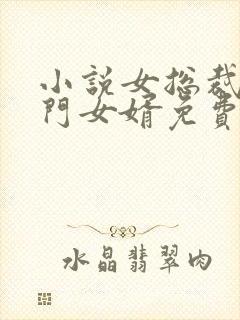 小説女総裁
門女婿免費
水晶翡翠肉